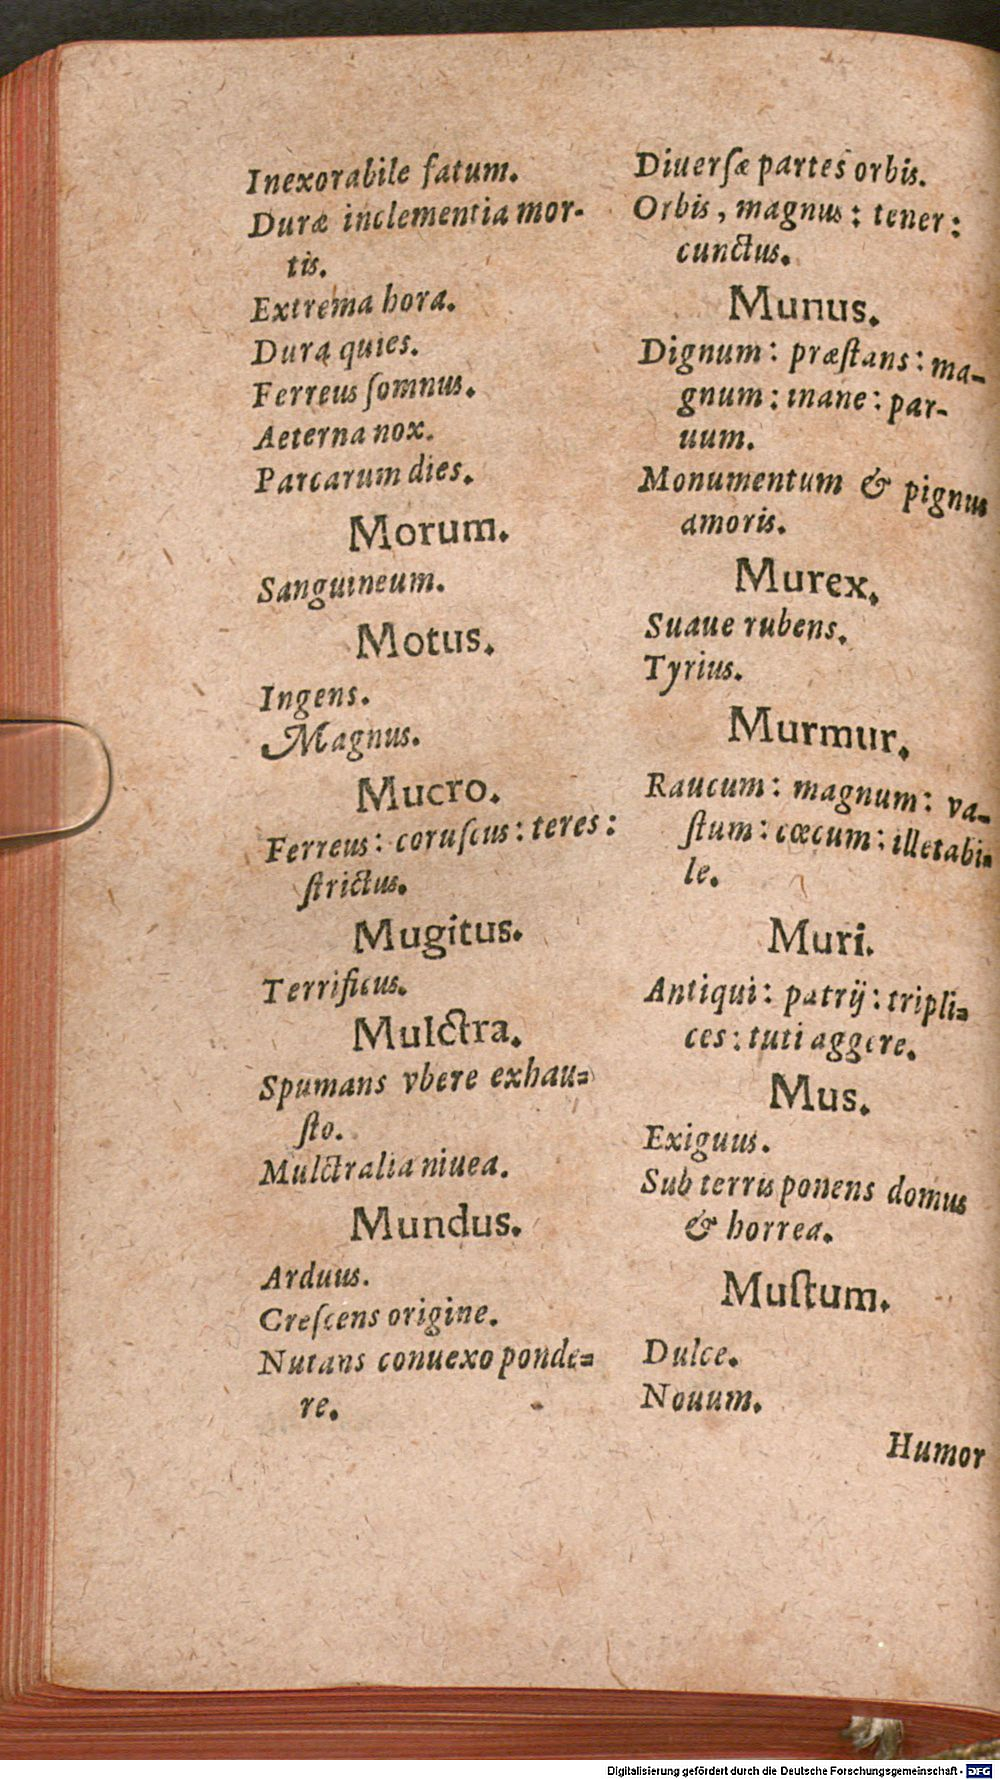 Inexorabile fatum.
Duræ inclementia mor-
tis.
Extrema hora.
Dura quies.
Ferreus ſomnus.
Aeterna nox.
Parcarum dies.
Morum.
Sanguineum.
Motus.
Ingens.
Magnus.
Mucro.
Ferreus: coruſcus: teres:
ſtrictus.
Mugitus.
Terrificus.
Mulctra.
Spumans vbere exhau=
ſto.
Mulctralia niuea.
Mundus.
Arduus.
Creſcens origine.
Nutans conuexo ponde=
re.
Diuerſæ partes orbis.
Orbis, magnus: tener:
cunctus.
Munus.
Dignum: præſtans: ma-
gnum: inane: par-
uum.
Monumentum & pignus
amoris.
Murex.
Suaue rubens.
Tyrius.
Murmur.
Raucum: magnum: va-
ſtum: cœcum: illetabi=
le.
Muri.
Antiqui: patrij: tripli=
ces: tuti aggere.
Mus.
Exiguus.
Sub terris ponens domus
& horrea.
Muſtum.
Dulce.
Nouum.
Humor
Digitalisierung gefördert durch die Deutsche Forschungsgemeinschaft - DFG